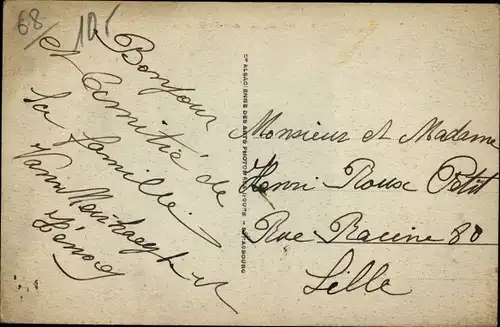 68/ 105
Bonjour
et Amitié de
la famille
Vann
Lénoré
Cie ALSACIENNE DES ARTS PHOTOMÉCANIQUES - STRASBOURG
Monsieur et Madame
Henri Roux Petit
Rue Racine 80
Lille